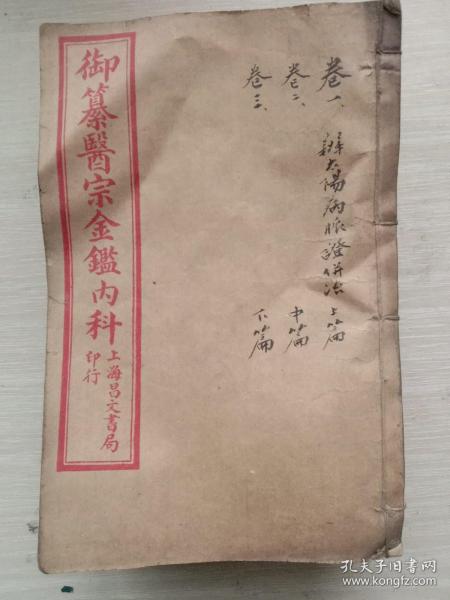 卷一、辨太陽病脈證併治上篇
卷二、中篇
卷三、下篇
御纂醫宗金鑑內科
上海昌文書局
印行
孔夫子旧书网
www.kongfz.com